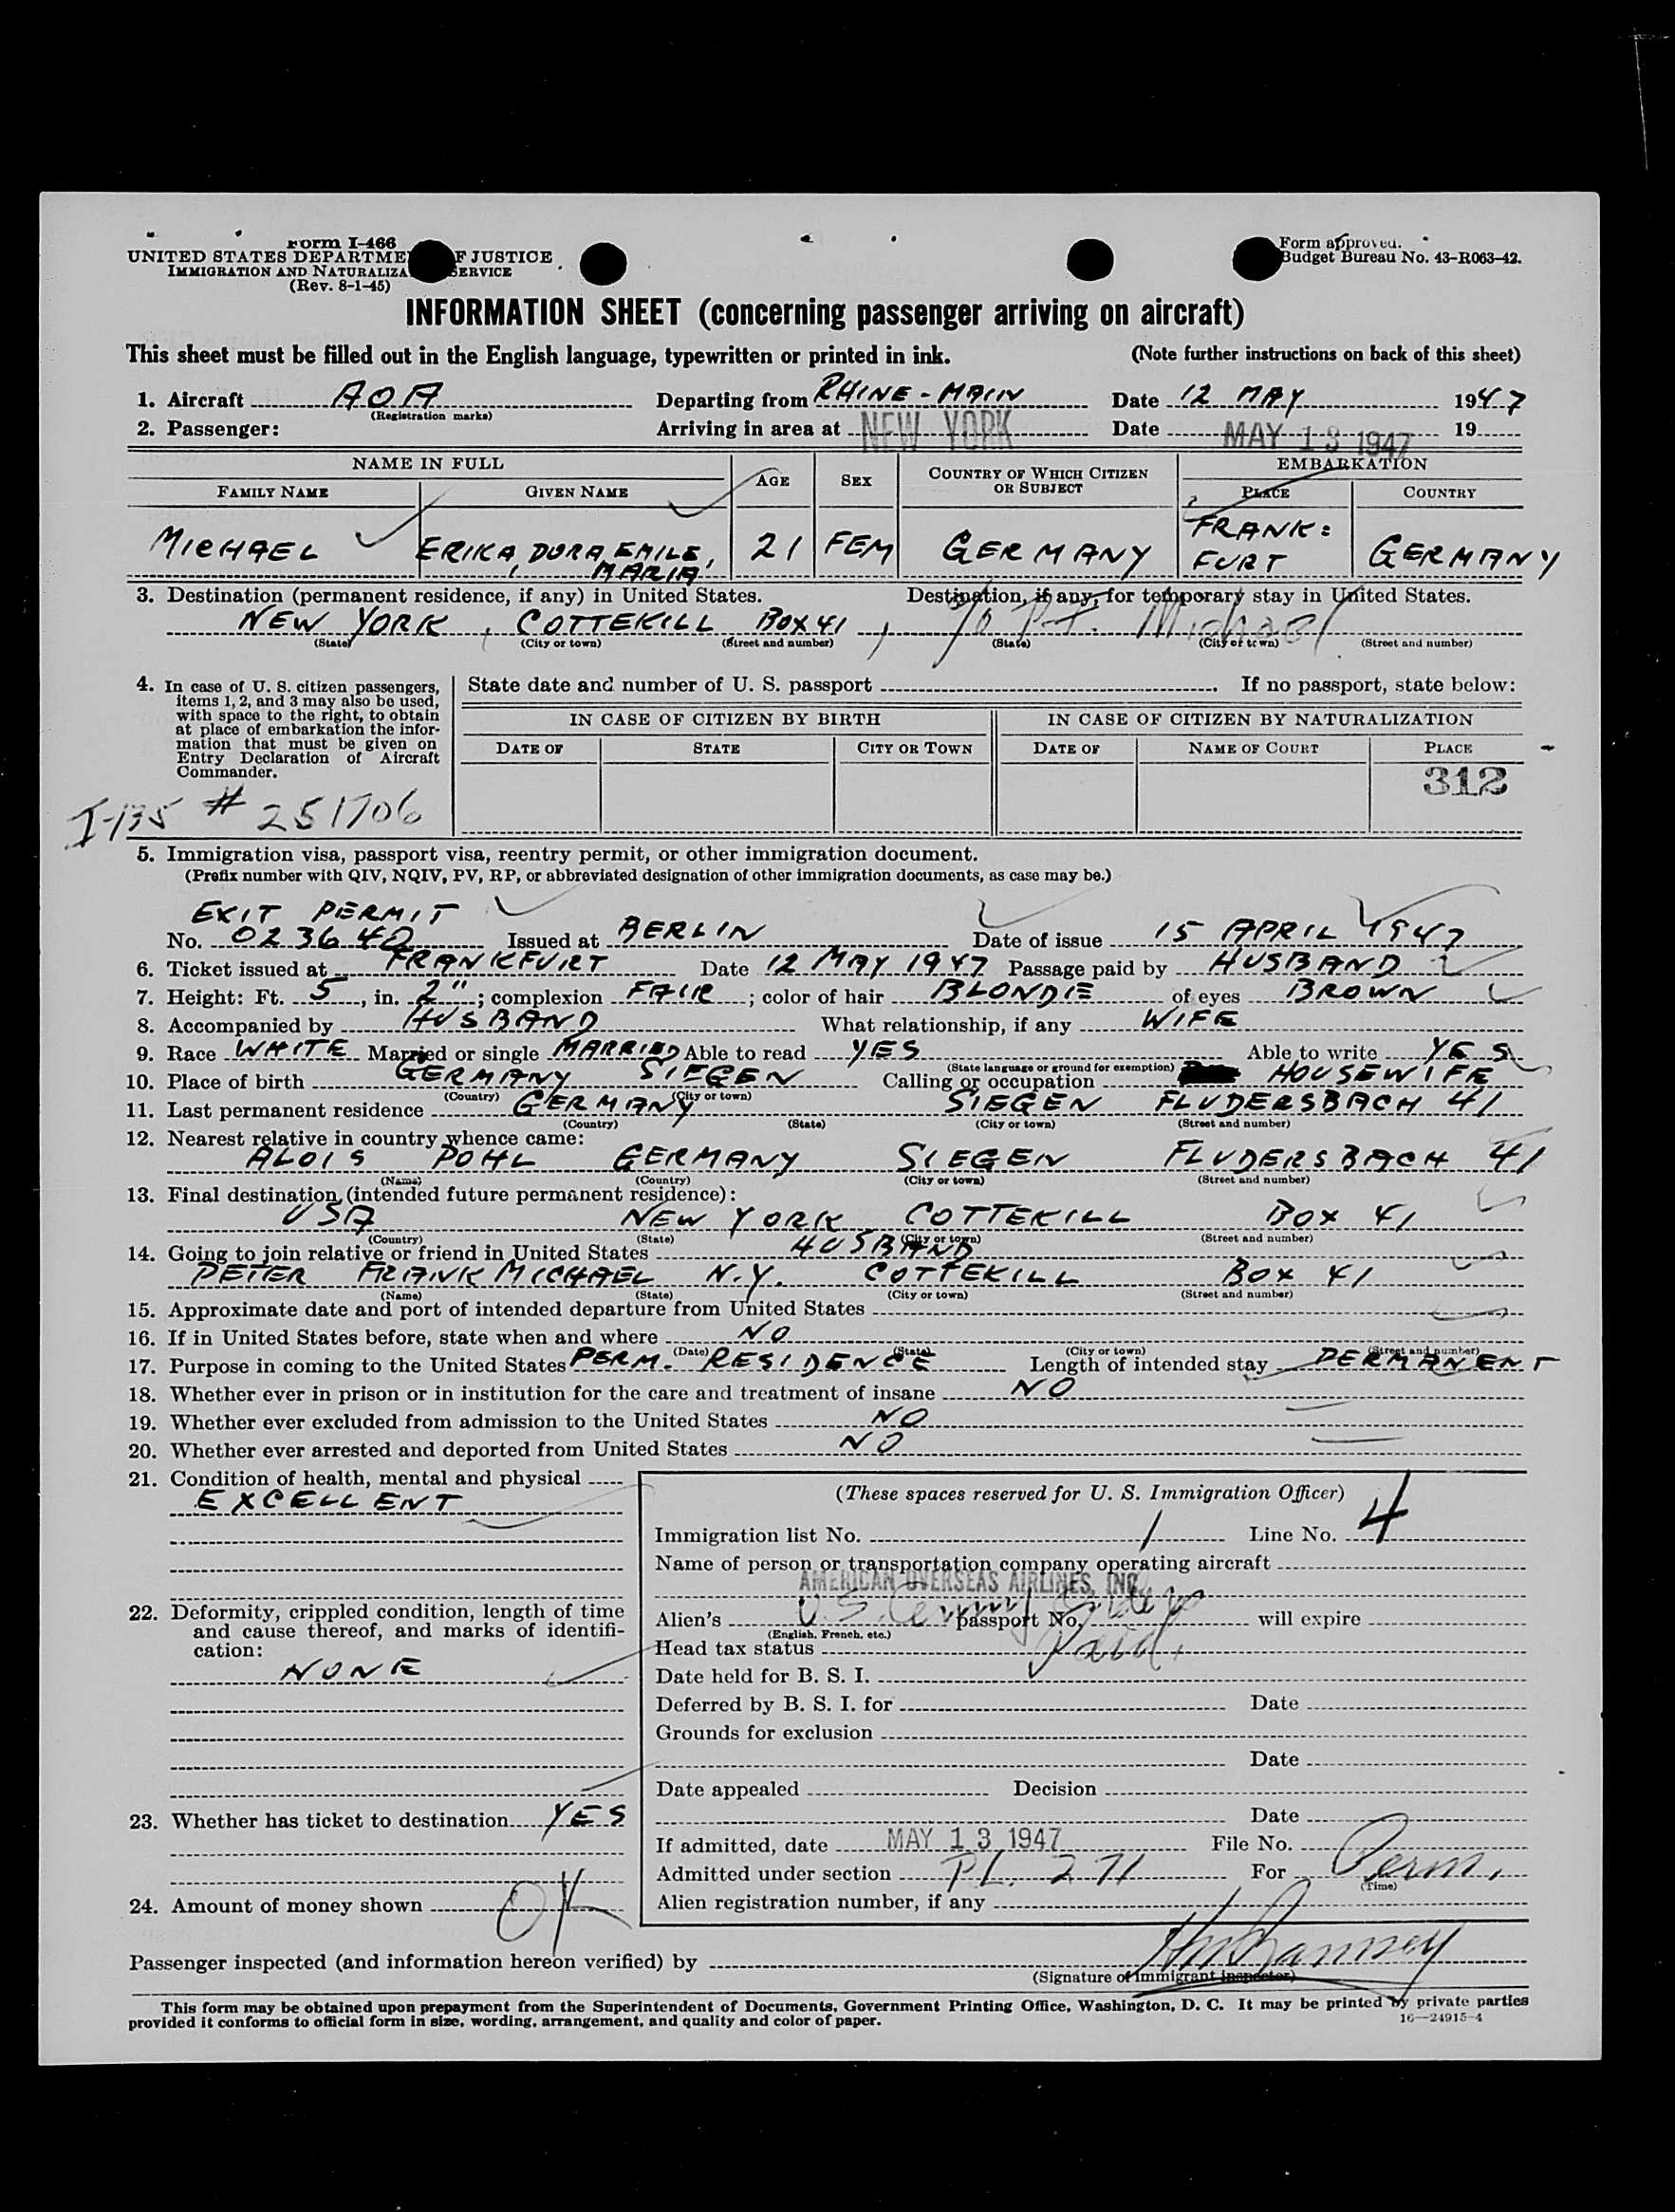 Form I-466
UNITED STATES DEPARTMENT OF JUSTICE
IMMIGRATION AND NATURALIZATION SERVICE
(Rev. 8-1-45)
Form approved.
Budget Bureau No. 43-R063-42.
INFORMATION SHEET (concerning passenger arriving on aircraft)
This sheet must be filled out in the English language, typewritten or printed in ink. (Note further instructions on back of this sheet)
1. Aircraft AOA Departing from RHINE-MAIN Date 12 MAY 1947
(Registration marks)
2. Passenger: Arriving in area at NEW YORK Date MAY 13 1947 19
NAME IN FULL AGE SEX COUNTRY OF WHICH CITIZEN OR SUBJECT EMBARKATION
FAMILY NAME GIVEN NAME PLACE COUNTRY
MICHAEL ERIKA, DORA, EMILE, MARIA 21 FEM GERMANY FRANK= FURT GERMANY
3. Destination (permanent residence, if any) in United States. Destination, if any, for temporary stay in United States.
NEW YORK, COTTEKILL BOX 41, % P.F. Michael
(State) (City or town) (Street and number) (State) (City or town) (Street and number)
4. In case of U. S. citizen passengers, items 1, 2, and 3 may also be used, with space to the right, to obtain at place of embarkation the information that must be given on Entry Declaration of Aircraft Commander.
State date and number of U. S. passport . If no passport, state below:
IN CASE OF CITIZEN BY BIRTH IN CASE OF CITIZEN BY NATURALIZATION
DATE OF STATE CITY OR TOWN DATE OF NAME OF COURT PLACE
312
I-135 # 251706
5. Immigration visa, passport visa, reentry permit, or other immigration document.
(Prefix number with QIV, NQIV, PV, RP, or abbreviated designation of other immigration documents, as case may be.)
EXIT PERMIT
No. 023640 Issued at BERLIN Date of issue 15 APRIL 1947
6. Ticket issued at FRANKFURT Date 12 MAY 1947 Passage paid by HUSBAND
7. Height: Ft. 5, in. 2"; complexion FAIR; color of hair BLONDIE of eyes BROWN
8. Accompanied by HUSBAND What relationship, if any WIFE
9. Race WHITE Married or single MARRIED Able to read YES Able to write YES
(State language or ground for exemption)
10. Place of birth GERMANY SIEGEN Calling or occupation HOUSEWIFE
(Country) (City or town)
11. Last permanent residence GERMANY SIEGEN FLUDERSBACH 41
(Country) (State) (City or town) (Street and number)
12. Nearest relative in country whence came:
ALOIS POHL GERMANY SIEGEN FLUDERSBACH 41
(Name) (Country) (City or town) (Street and number)
13. Final destination (intended future permanent residence):
USA NEW YORK COTTEKILL BOX 41
(Country) (State) (City or town) (Street and number)
14. Going to join relative or friend in United States HUSBAND
PETER FRANK MICHAEL N.Y. COTTEKILL BOX 41
(Name) (State) (City or town) (Street and number)
15. Approximate date and port of intended departure from United States
16. If in United States before, state when and where NO
(Date) (State) (City or town) (Street and number)
17. Purpose in coming to the United States PERM. RESIDENCE Length of intended stay PERMANENT
18. Whether ever in prison or in institution for the care and treatment of insane NO
19. Whether ever excluded from admission to the United States NO
20. Whether ever arrested and deported from United States NO
21. Condition of health, mental and physical
EXCELLENT
22. Deformity, crippled condition, length of time and cause thereof, and marks of identification:
NONE
23. Whether has ticket to destination YES
24. Amount of money shown OK
(These spaces reserved for U. S. Immigration Officer)
Immigration list No. 1 Line No. 4
Name of person or transportation company operating aircraft
AMERICAN OVERSEAS AIRLINES, INC.
Alien's U.S. Army Orders passport No. will expire
(English, French, etc.)
Head tax status Paid,
Date held for B. S. I.
Deferred by B. S. I. for Date
Grounds for exclusion
Date
Date appealed Decision
Date
If admitted, date MAY 13 1947 File No.
Admitted under section P.L. 271 For Perm.
(Time)
Alien registration number, if any
Passenger inspected (and information hereon verified) by
(Signature of immigrant inspector)
This form may be obtained upon prepayment from the Superintendent of Documents, Government Printing Office, Washington, D. C. It may be printed by private parties
provided it conforms to official form in size, wording, arrangement, and quality and color of paper. 16—24915-4